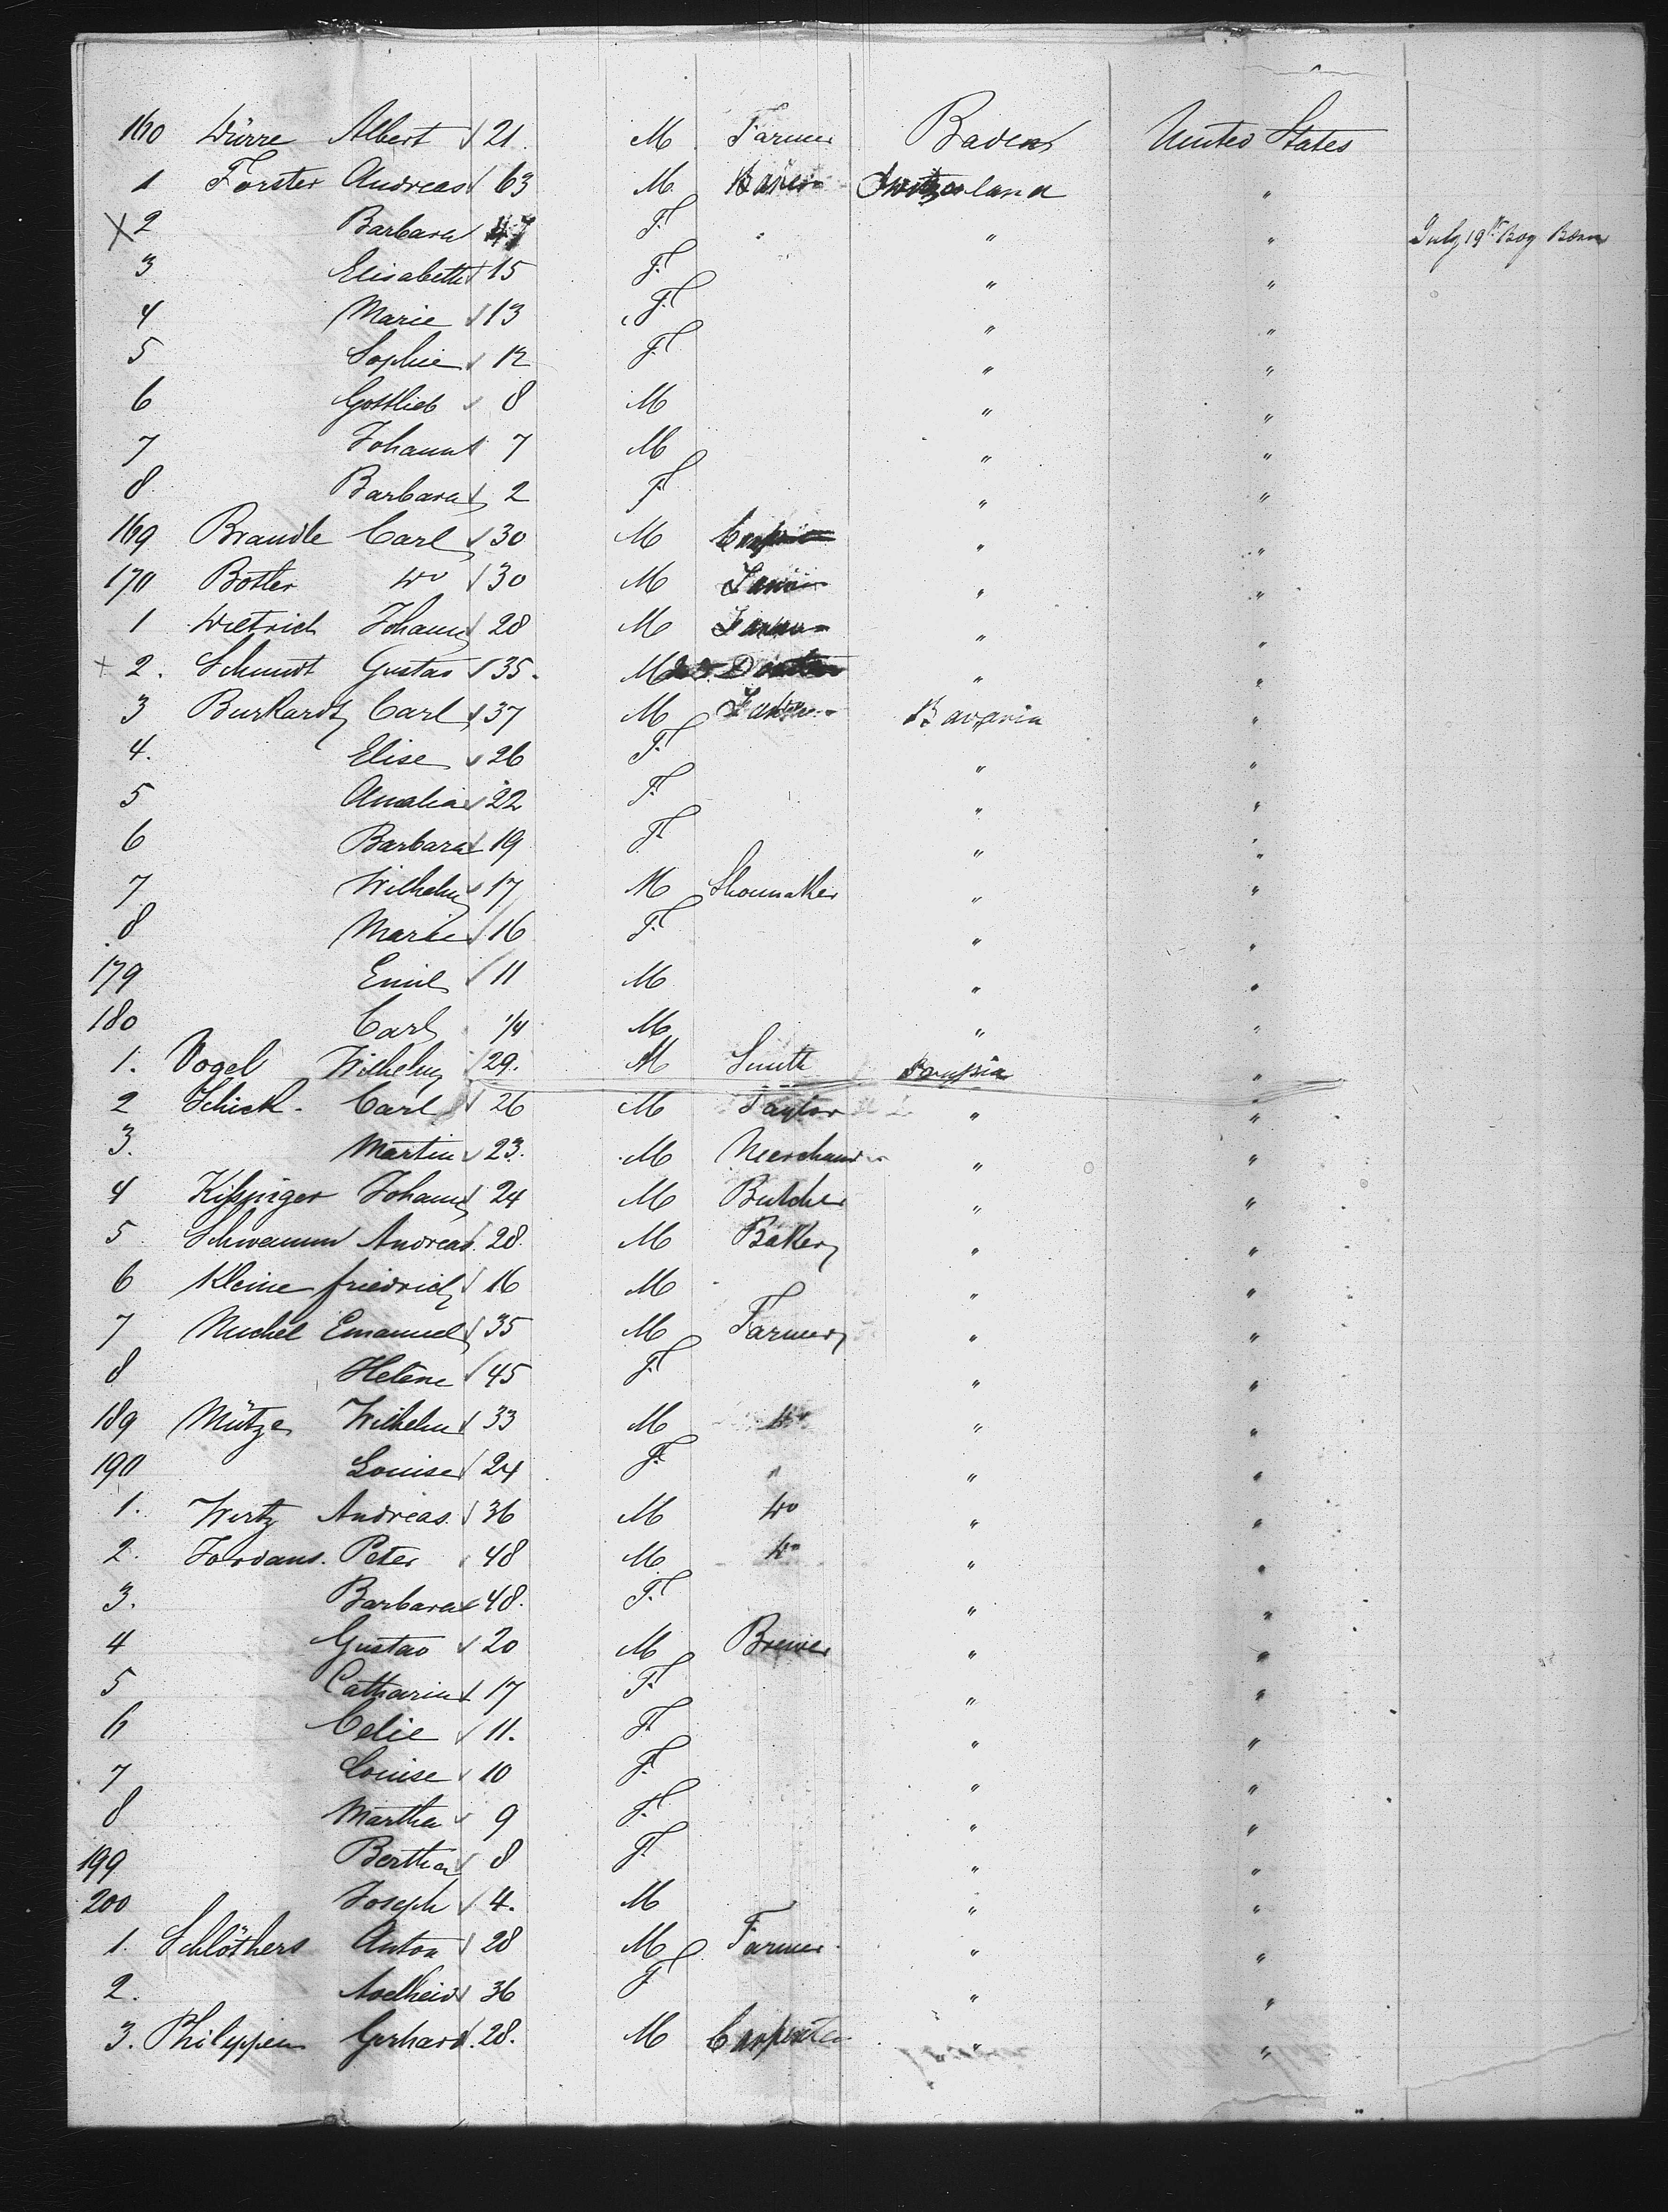 160 Dürre Albert 21. M Farmer Baden United States
1 Forster Andreas 63 M Switzerland "
X2 Barbara 47 F. " " July 19th Boy Born
3 Elisabeth 15 F. " "
4 Marie 13 F. " "
5 Sophie 12 F. " "
6 Gottlieb 8 M " "
7 Johann 7 M " "
8 Barbara 2 F. " "
169 Brandle Carl 30 M " "
170 Botler do 30 M " "
1 Dietrich Johann 28 M " "
+ 2. Schmidt Gustav 35. M " "
3 Burkardt Carl 37 M Bavaria "
4. Elise 26 F. " "
5 Amalia 22 F. " "
6 Barbara 19 F. " "
7 Wilhelm 17 M Shoemaker " "
8 Marie 16 F. " "
179 Emil 11 M " "
180 Carl 1/4 M " "
1. Vogel Wilhelm 29. M Smith "
2 Schick. Carl 26 M Taylor " "
3. Martin 23. M Merchant " "
4 Kissinger Johann 24 M Butcher " "
5 Schwamm Andreas 28. M Baker " "
6 Kleine friedrich 16 M " "
7 Michel Emanuel 35 M Farmer " "
8 Helene 45 F. " "
189 Mütze Wilhelm 33 M do " "
190 Louise 24 F. " "
1. Wirtz Andreas. 36 M do " "
2. Jordans. Peter 48 M do " "
3. Barbara 48. F. " "
4 Gustav 20 M Brewer " "
5 Catharine 17 F. " "
6 Celie 11. F. " "
7 Louise 10 F. " "
8 Martha 9 F. " "
199 Bertha 8 F. " "
200 Joseph 4. M " "
1. Schlöthers Anton 28 M Farmer " "
2. Adelheid 36 F " "
3. Philippen Gerhard. 28. M Carpenter " "